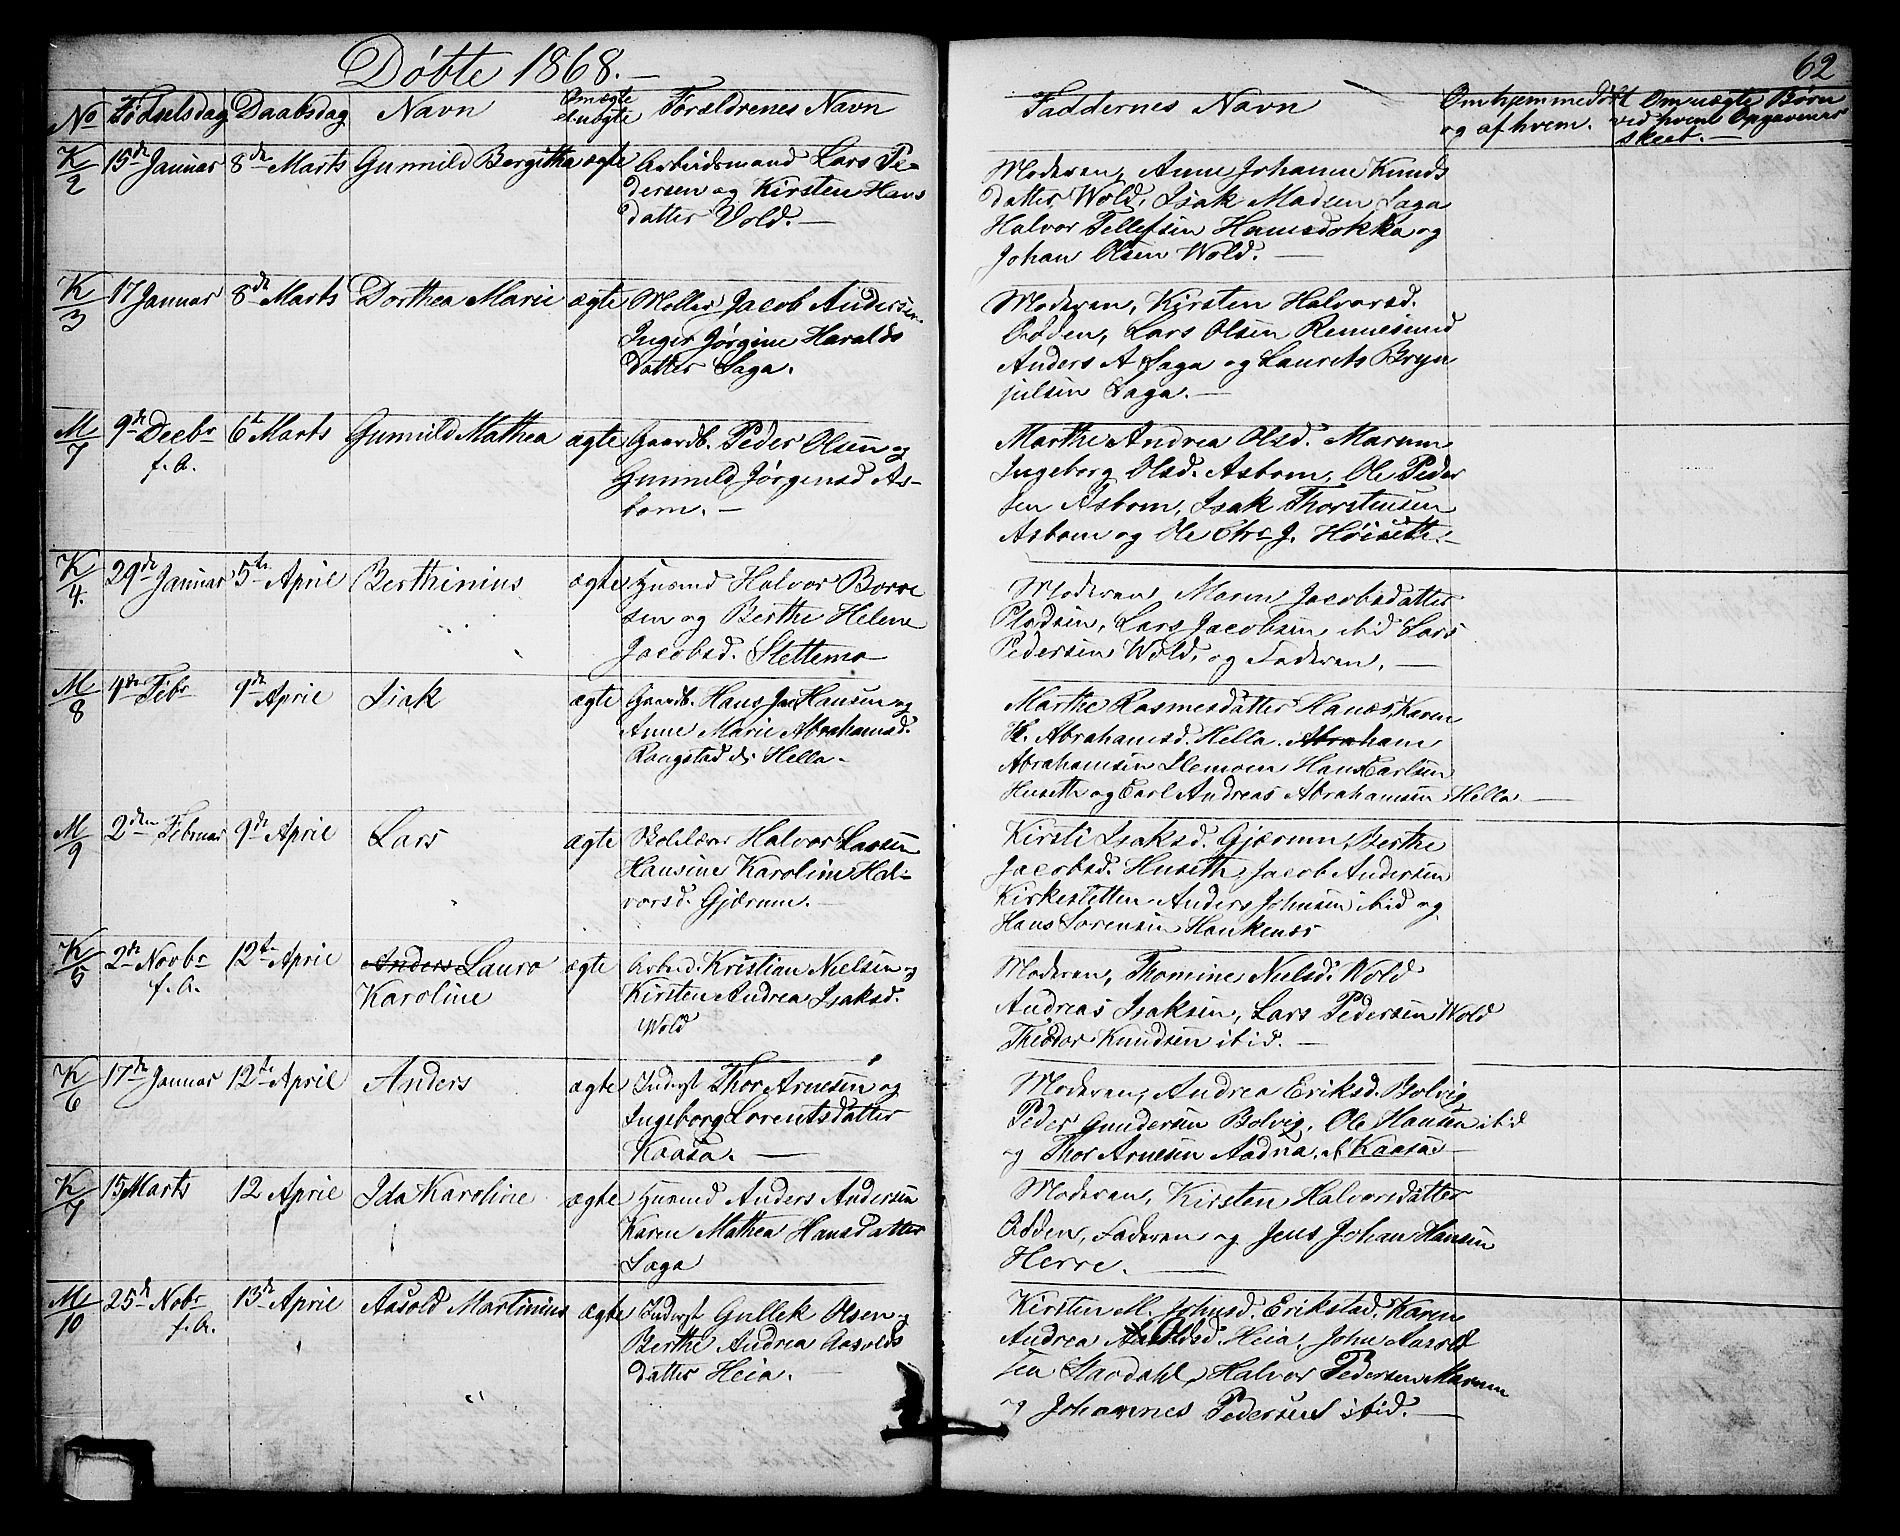 Døbte 1868.
62
No Fødselsdag Daabsdag Navn Om ægte el uægte Forældrenes Navn
Faddernes Navn Om hjemmedøbt og af hvem. Om uægte Børn ved hvem Opgavener skeet.
K/2 15de Januar 8de Marts Gunnild Bergitha ægte Arbeidsmand Lars Pe-
dersen og Kirsten Hans
datter Vold.
Moderen, Anne Johanne Knuds
datter Wold, Isak Madsen Saga
Halvor Tellefsen Hamsdokka og
Johan Olsen Wold.
K/3 17 Januar 8de Marts Dorthea Marie ægte Møller Jacob Andersen
Inger Jørgine Haralds
datter Saga.
Moderen, Kirsten Halvorsd.
Odden, Lars Olsen Rennesund
Anders A Saga og Laurits Bryn
julsen Saga.
M/7 9de Decbr f. A. 6te Marts Gunnild Mathea ægte Gaardb. Peder Olsen og
Gunnild Jørgensd As-
bom.
Marthe Andrea Olsd. Marum
Ingeborg Olsd. Asbom, Ole Peder
sen Asbom, Isak Thorstensen
Asbom og Ole Chr. J. Höiseth.
K/4. 29de Januar 5te April Berthinius ægte Husmd Halvor Borre
sen og Berthe Helene
Jacobsd. Slettemo
Moderen, Maren Jacobsdatter
Plodsen, Lars Jacobsen ibid Lars
Pedersen Wold, og Faderen.
M/8 4de Febr 9de April Isak ægte Gaardb. Hans Jac Hansen og
Anne Marie Abrahamsd.
Rongstad ds Hella.
Marthe Rasmusdatter Hanæs, Karen
K. Abrahamsd. Hella. Abraham
Abrahamsen Slemoen Hans Carlsen
Huseth og Carl Andreas Abrahamsen Hella
M/9 2den Februar 9de April Lars ægte Skolelærer Halvor Larsen
Hansine Karoline Hal-
vorsd. Gjærum.
Kirsti Isaksd. Gjærum, Berthe
Jacobsd. Huseth, Jacob Andersen
Kirkesletten Anders Johnsen ibid og
Hans Sorensen Haukenæs
K/5 2de Novbr f. A. 12te April Anders Laura ægte Arbmd. Kristian Nielsen og
Karoline
Kirsten Andrea Isaksd.
Wold
Moderen, Thomine Nielsd. Wold
Andreas Isaksen, Lars Pedersen Wold
Theodor Knudsen ibid.
K/6 17de Januar 12te April Anders ægte Inderst Thor Arnesen og
Ingeborg Lorentsdatter
Kaasa.
Moderen, Andrea Eriksd. Bolvig
Peder Gundersen Bolvig, Ole Hansen ibid
og Thor Arnesen Aadna, af Kaasa
K/7 15 Marts 12 April Ida Karoline ægte Husmd Anders Andersen
Karen Mathea Hansdatter
Saga
Moderen, Kirsten Halvorsdatter
Odden, Faderen og Jens Johan Hansen
Herre.
M/10 25de Nobr f. A. 13de April Aasold Martinius ægte Inderst Gullek Olsen og
Berthe Andrea Aasolds
datter Heia.
Kirsten M. Johnsd. Erikstad. Karen
Andrea Olsd. Heia, John Aasold
sen Stavdahl, Halvor Pedersen Marum
og Johannes Pedersen ibid.